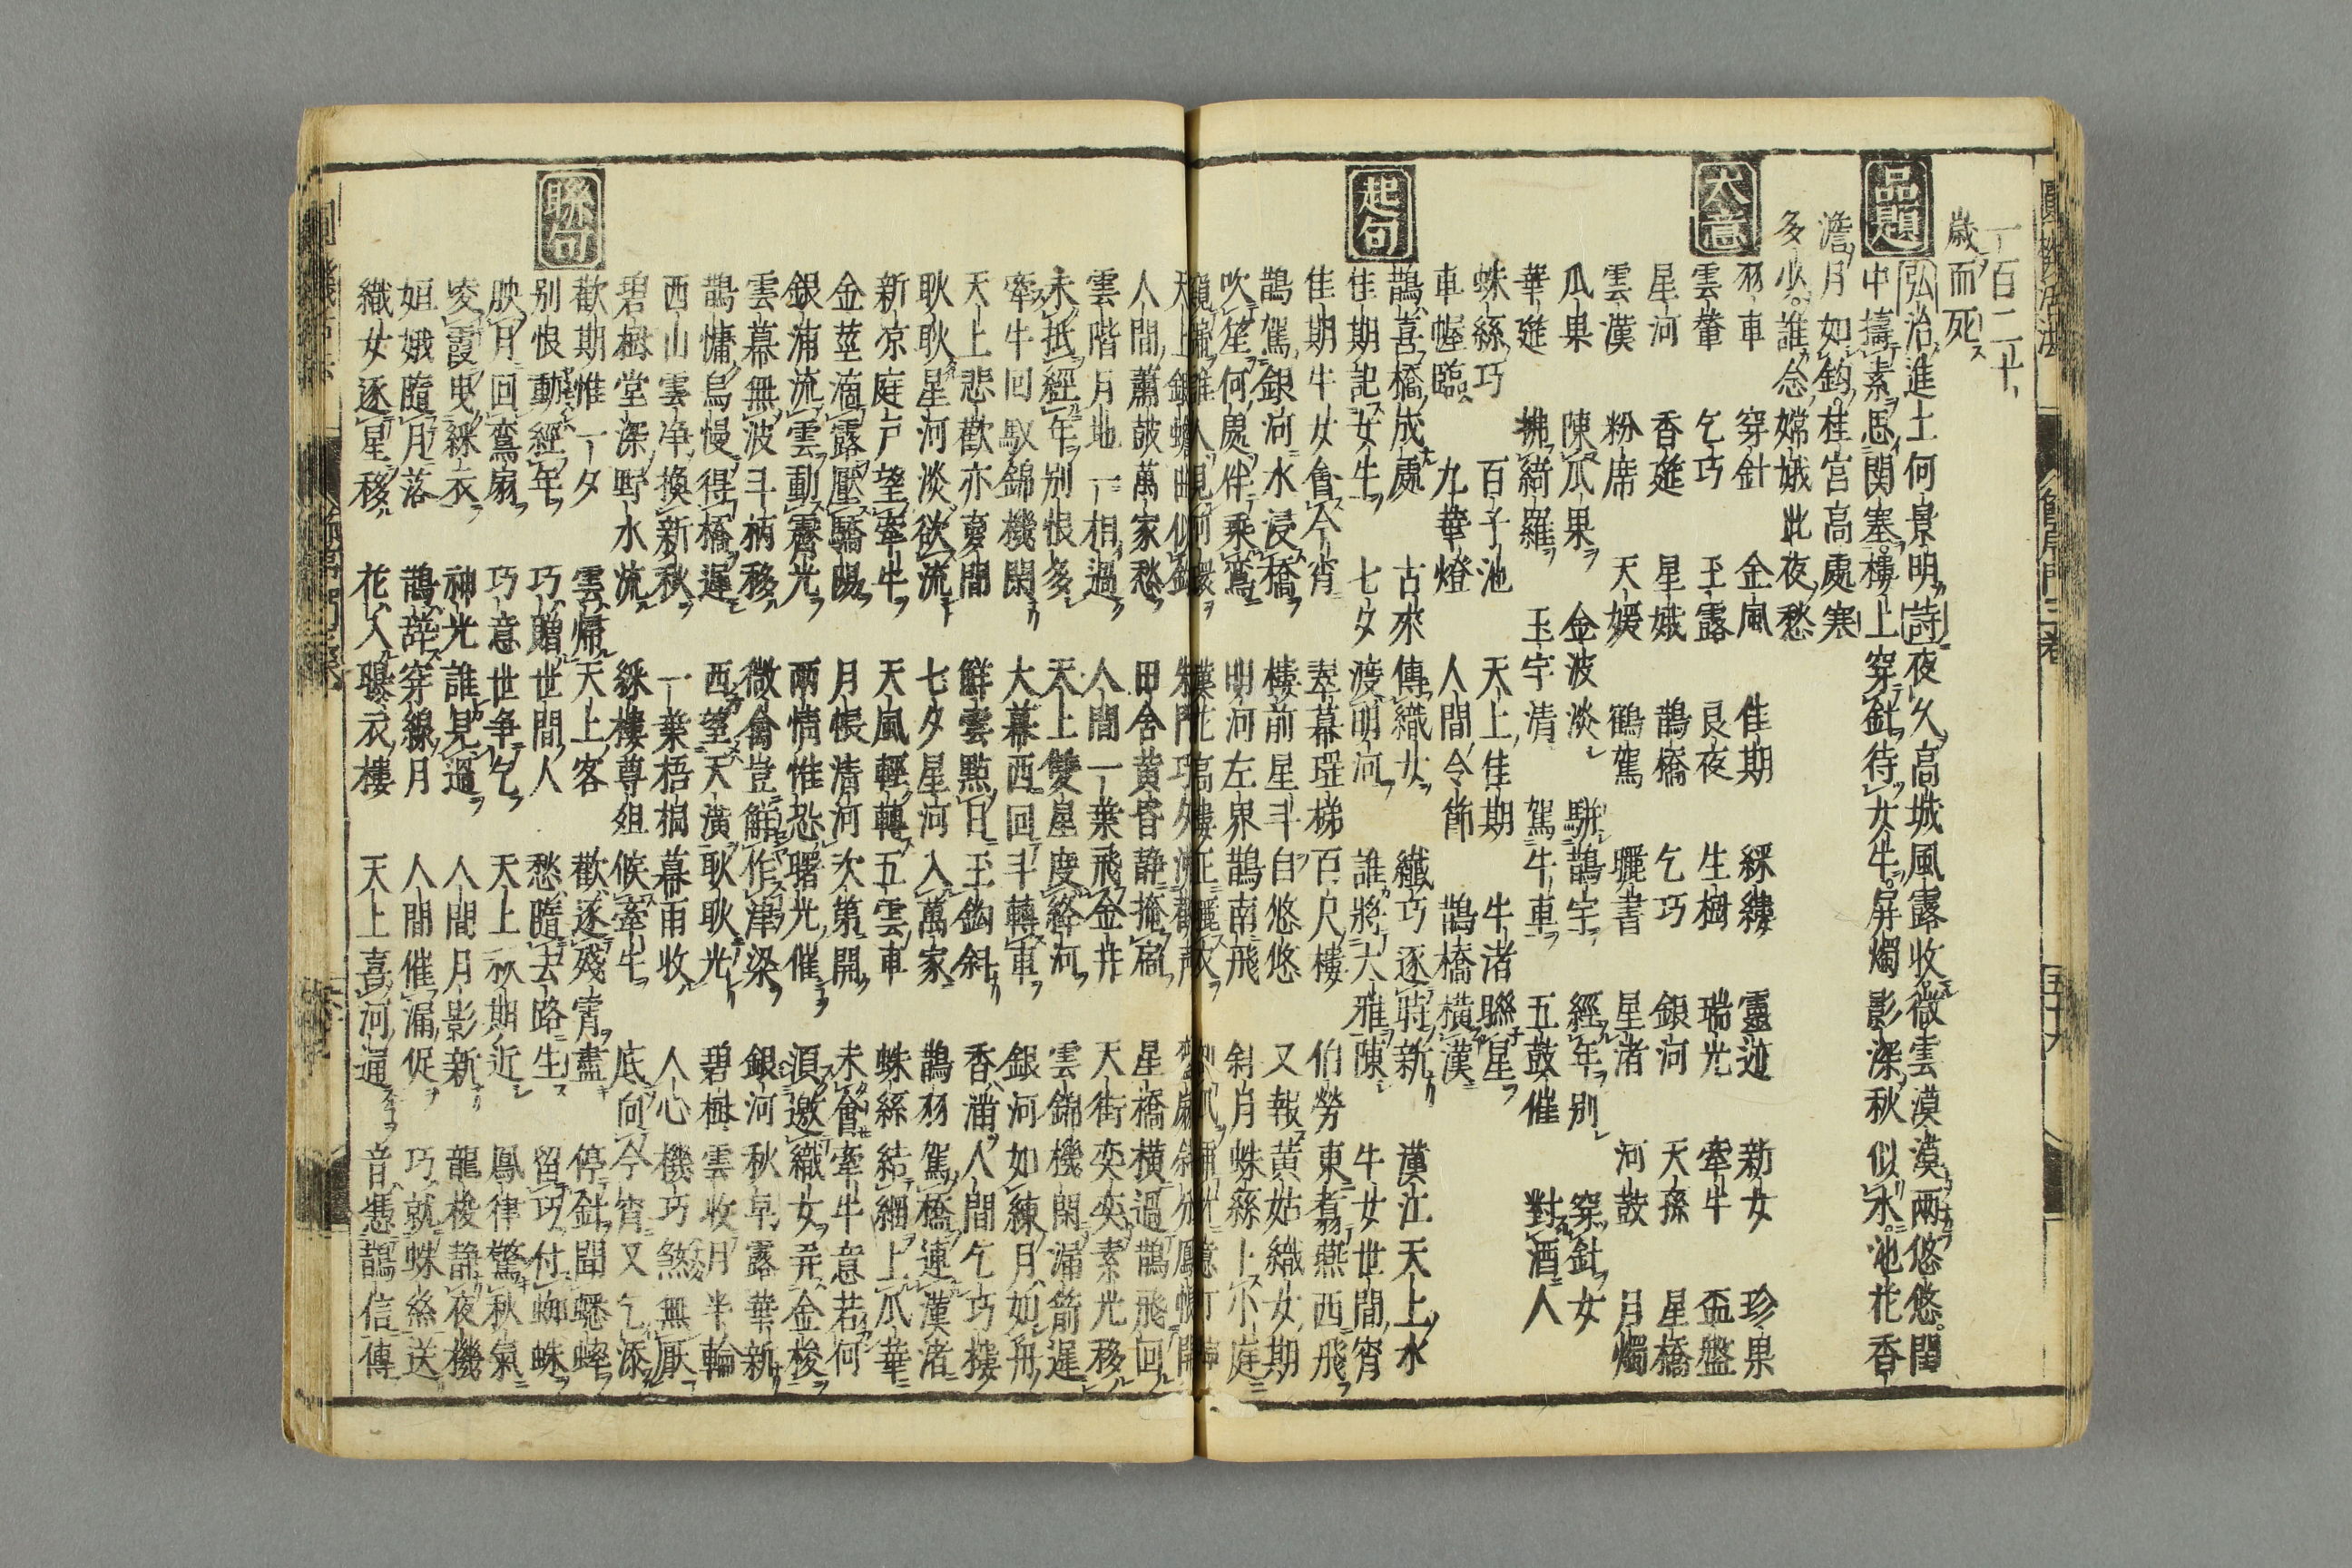 一百二十
歳而死
品題
弘治進士何景明詩夜久高城風露收微雲漠漠兩悠悠閨
中擣素思関塞樓上穿針待女牛屏燭影深秋似水池花香
澹月如鈎桂宮高處寒
多少誰念嫦娥此夜愁
大意
羽車 穿針 金風 佳期 綵縷 靈迹 新女 珍果
雲軰 乞巧 玉露 良夜 生樹 瑞光 牽牛 盃盤
星河 香筵 星娥 鵲橋 乞巧 銀河 天孫 星橋
雲漢 粉席 天媛 鶴駕 曬書 星渚 河鼓 月燭
瓜果 陳瓜果 金波淡 駢鵲宇 經年別 穿針女
華筵 拂綺羅 玉宇清 駕牛車 五鼓催 對酒人
蛛絲巧 百子池 天上佳期 牛渚聯星
車幄臨 九華燈 人間令節 鵲橋橫漢
起句
鵲喜橋成處 古來傳織女 纖巧逐時新 漢江天上水
佳期記女牛 七夕渡明河 誰將大雅陳 牛女世間宵
佳期牛女會今宵 翠幕瑶梯百尺樓 伯勞東翥燕西飛
鵲駕銀河水浸橋 樓前星斗自悠悠 又報黄姑織女期
吹笙何處伴乘鸞 明河左界鵲南飛 斜月蛛絲上小庭
人間蕭鼓萬家愁 田舍黄昏静掩扉 星橋橫過鵲飛回
雲階月地一相過 人間一葉飛金井 天街奕奕素光移
未抵經年別恨多 天上雙星度絡河 雲錦機閑漏箭遲
牽牛回馭錦機閑 大幕西回斗轉車 銀河如練月如舟
天上悲歡亦夢間 鮮雲點日玉鈎斜 香滿人間乞巧樓
耿耿星河淡欲流 七夕星河入萬家 鵲羽駕橋連漢渚
新凉庭戸望牽牛 天風輕轉五雲車 蛛絲結網上瓜華
金莖滴露壓驕陽 月帳清河次第開 未會牽牛意若何
銀浦流雲動霽光 兩情惟恐曙光催 須邀織女弄金梭
雲幕無波斗柄移 微禽豈解作津梁 銀河秋早露華新
鵲慵烏慢得橋遲 西望天潢耿耿光 碧樹雲收月半輪
西山雲净換新秋 一葉梧桐暮雨收 人心機巧煞無厭
碧樹堂深野水流 綵樓尊俎候牽牛 底向今宵又乞添
聯句
歡期惟一夕 雲歸天上客 歡逐殘宵盡 停針聞蟋蟀
別恨動經年 巧贈世間人 愁隨去路生 留巧付蜘蛛
映月回鸞扇 巧意世争乞 天上秋期近 鳳律驚秋氣
凌霞曳綵衣 神光誰見過 人間月影新 龍梭静夜機
姮娥隨月落 鵲辭穿線月 人間催漏促 巧就蛛絲送
織女逐星移 花入曝衣樓 天上喜河通 音憑鵲信傳